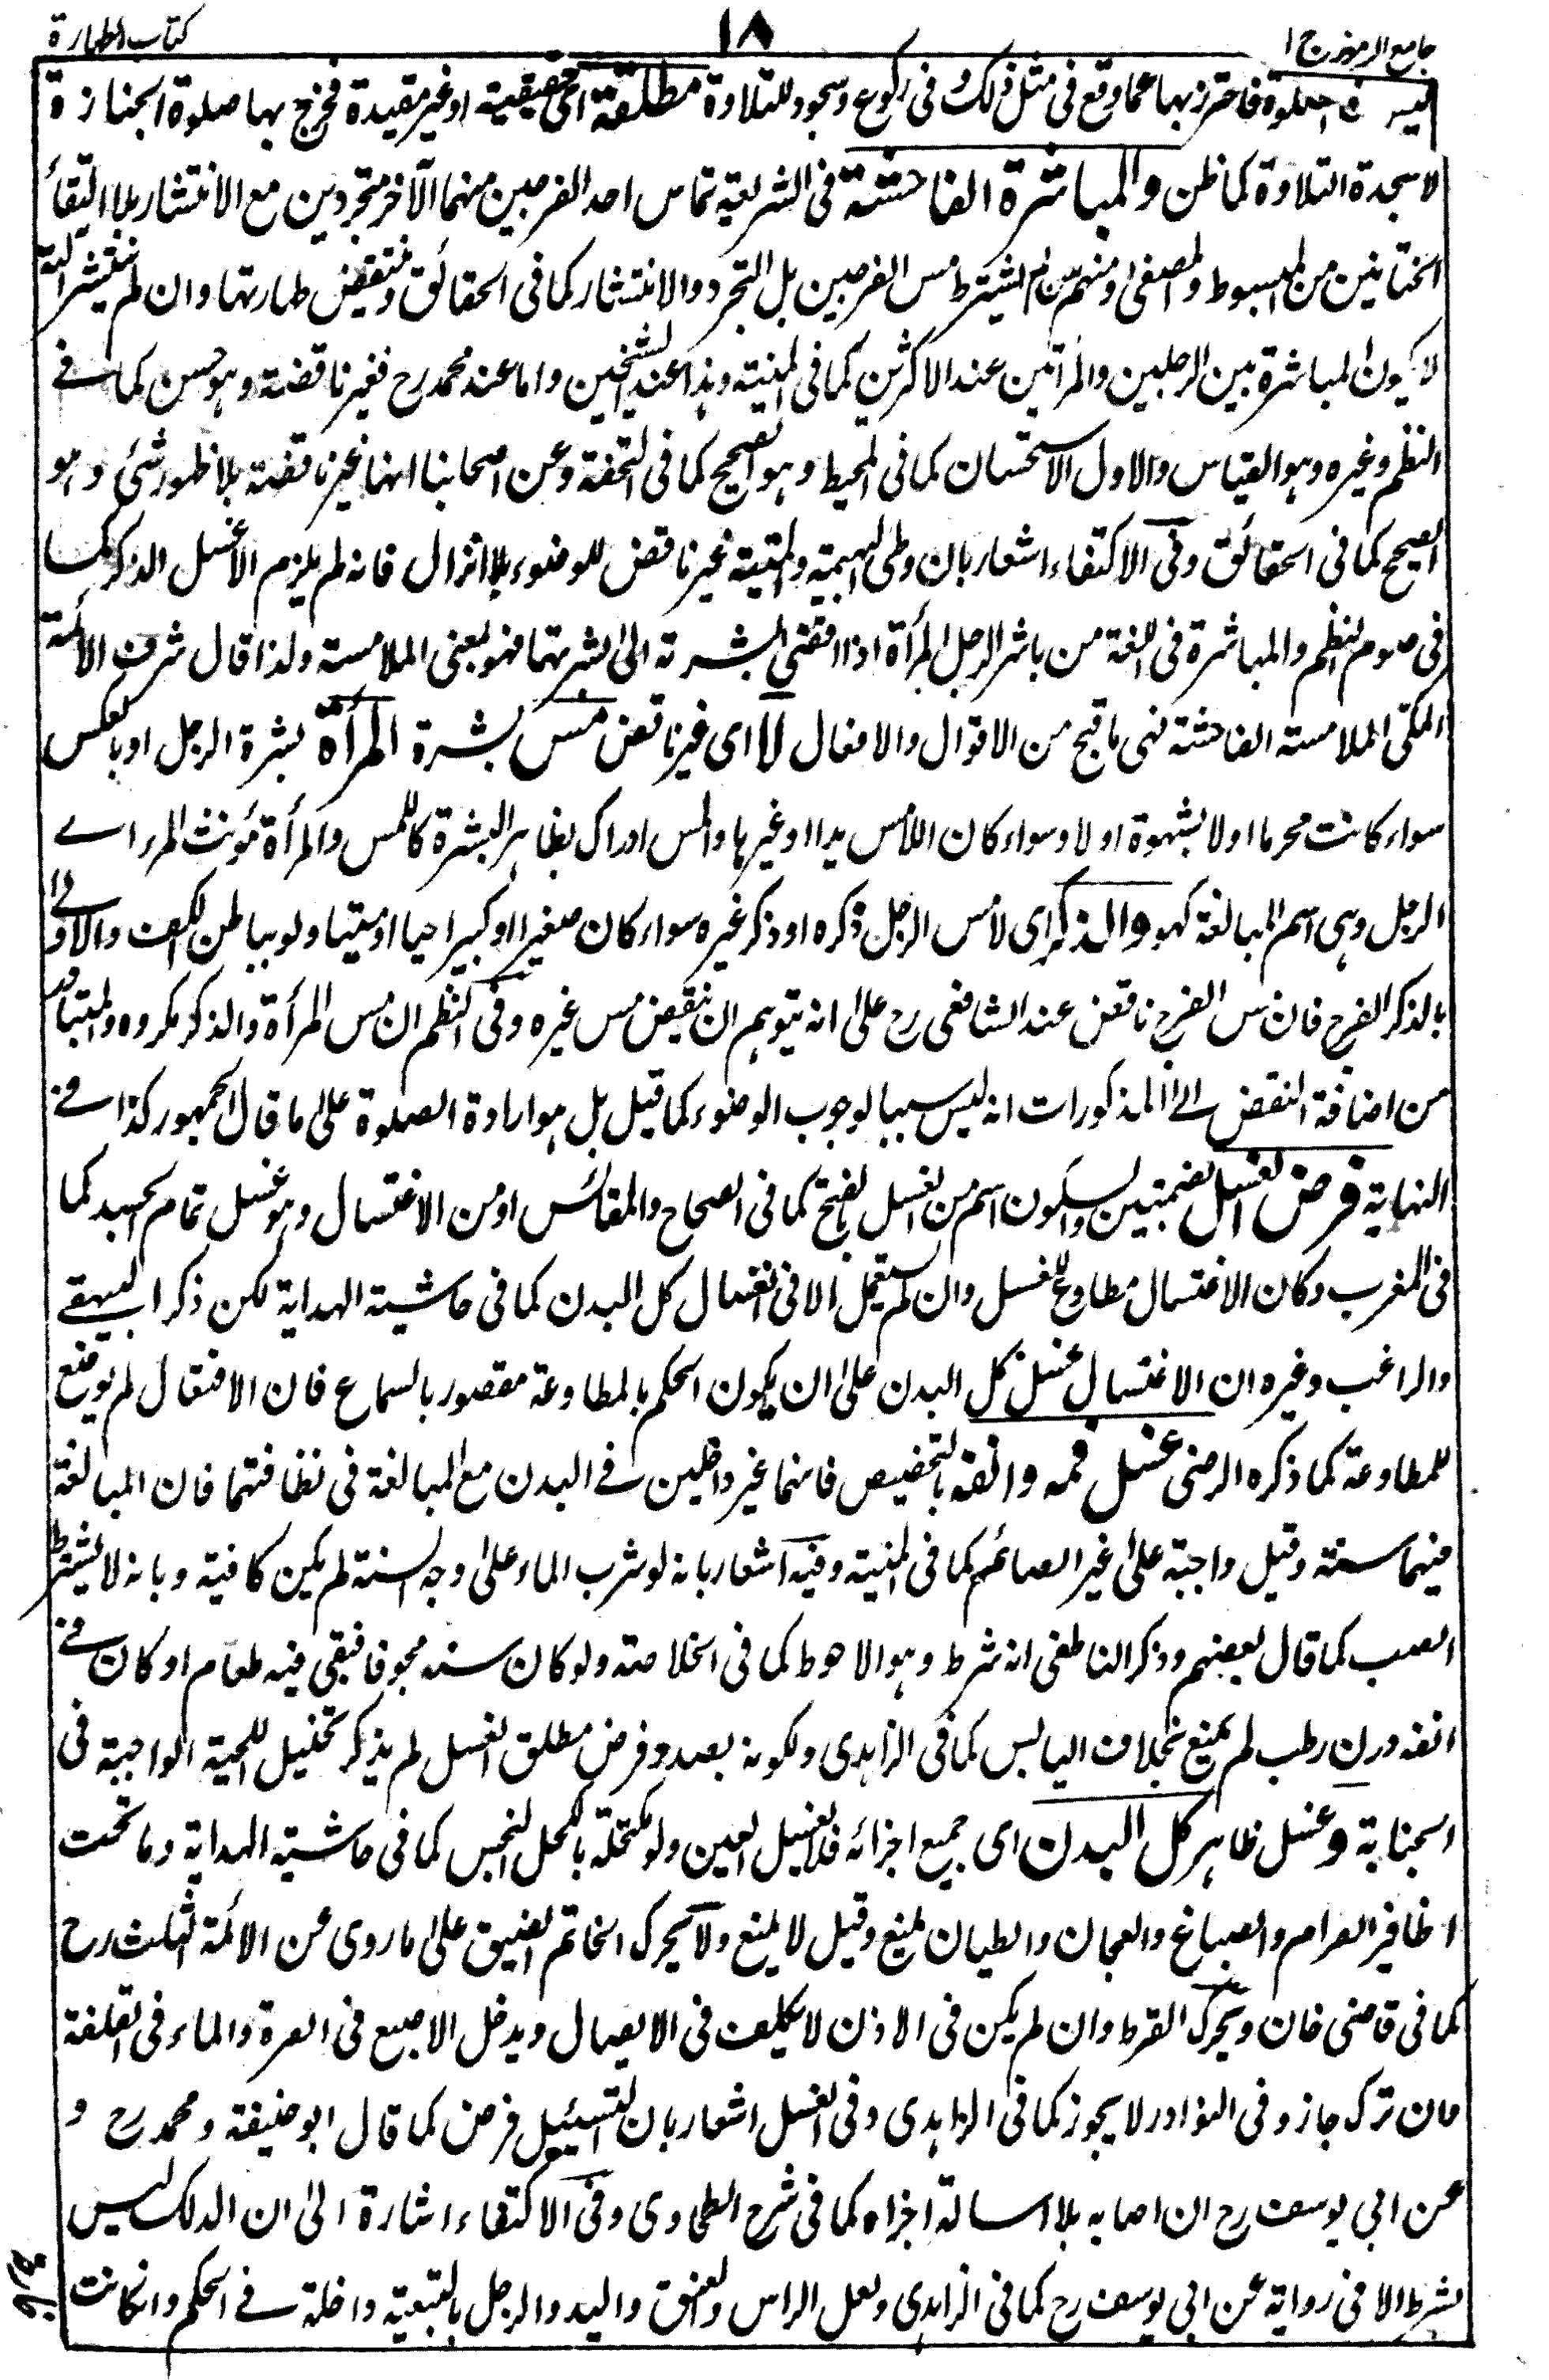 جامع الرموز ج ١
١٨
كتاب الطهارة
ليس فى الصلوة فاحترز بها عما وقع فى مثل ذلك فى ركوع وسجود للتلاوة مطلقة اى حقيقية او غير مقيدة فخرج بها صلوة الجنازة
لا سجدة التلاوة كما ظن والمباشرة الفاحشة فى الشريعة تماس احد الفرجين منهما الآخر متجردين مع الانتشار بلا التقاء
الختانين من المبسوط والمصفى ومنهم من لم يشترط مس الفرجين بل التجرد والانتشار كما فى الحقائق وتنتقض طهارتها وان لم ينتشر آلته
لا يكون المباشرة بين الرجلين والمرأتين عند الاكثرين كما فى المنية وهذا عند الشيخين واما عند محمد رح فغير ناقضة وهو حسن كما فى
النظم وغيره وهو القياس والاول الاستحسان كما فى المحيط وهو الصحيح كما فى التحفة وعن اصحابنا انها غير ناقضة بلا ظهور شئ وهو
الصحيح كما فى الحقائق وفى الاكتفاء اشعار بان وطى البهيمة والميتة غير ناقض للوضوء بلا انزال فانه لم يلزم الا غسل الذكر كما
فى صوم النظم والمباشرة فى اللغة من باشر الرجل المرأة اذا افضى بشرته الى بشرتها فهو بمعنى الملامسة ولذا قال شرف الائمة
المكى الملامسة الفاحشة فهى ما قبح من الاقوال والافعال لا اى غير ناقض مس بشرة المرأة بشرة الرجل او بالعكس
سواء كانت محرما او لا بشهوة او لا وسواء كان اللامس يدا او غيرها والمس ادراك بظاهر البشرة كاللمس والمرأة مؤنث المرء اى
الرجل وهى اسم للبالغة كهو والذكر اى لا مس الرجل ذكره او ذكر غيره سواء كان صغيرا او كبيرا حيا او ميتا ولو بباطن الكف والاولى
بالذكر الفرج فان مس الفرج ناقض عند الشافعى رح على انه يتوهم ان ينقض مس غيره وفى النظم ان مس المرأة والذكر مكروه والمتبادر
من اضافة النقض الى المذكورات انه ليس سببا لوجوب الوضوء كما قيل بل هو ارادة الصلوة على ما قال الجمهور كذا فى
النهاية فرض الغسل بضمتين والسكون اسم من الغسل بالفتح كما فى الصحاح والمقائس او من الاغتسال وهو غسل تمام الجسد كما
فى المغرب وكان الاغتسال مطاوع للغسل وان لم يستعمل الا فى انغسال كل البدن كما فى حاشية الهداية لكن ذكر البيهقى
والراغب وغيره ان الاغتسال غسل كل البدن على ان يكون الحكم بالمطاوعة مقصور بالسماع فان الافتعال لم يوضع
للمطاوعة كما ذكره الرضى غسل فمه وانفه بالتخصيص فانهما غير داخلين فى البدن مع المبالغة فى نظافتهما فان المبالغة
فيهما سنة وقيل واجبة على غير الصائم كما فى المنية وفيه اشعار بانه لو شرب الماء على وجه السنة لم يكن كافية وبانه لا يشترط
الصب كما قال بعضهم وذكر الناطفى انه شرط وهو الاحوط كما فى الخلاصة ولو كان سنه مجوفا فبقى فيه طعام او كان فى
انفه درن رطب لم يمنع بخلاف اليابس كما فى الزاهدى ولكونه بصدد فرض مطلق الغسل لم يذكر تخليل اللحية الواجبة فى
الجنابة وغسل ظاهر كل البدن اى جميع اجزائه فلا يغسل العين ولو مكتحلة بالكحل النجس كما فى حاشية الهداية وما تحت
اظافير الصرام والصباغ والعجان والطيان يمنع وقيل لا يمنع ولا يحرك الخاتم الضيق على ما روى عن الائمة الثلث رح
كما فى قاضى خان ويحرك القرط وان لم يكن فى الاذن لا يكلف فى الايصال ويدخل الاصبع فى السرة والماء فى القلفة
فان ترك جاز وفى النوادر لا يجوز كما فى الزاهدى وفى الغسل اشعار بان التسييل فرض كما قال ابو حنيفة ومحمد رح و
عن ابى يوسف رح ان اصابه بلا اسالة اجزاه كما فى شرح الطحاوى وفى الاكتفاء اشارة الى ان الدلك ليس
بشرط الا فى رواية عن ابى يوسف رح كما فى الزاهدى ولعل الراس والعنق واليد والرجل بالتبعية داخلة فى الحكم وانكانت